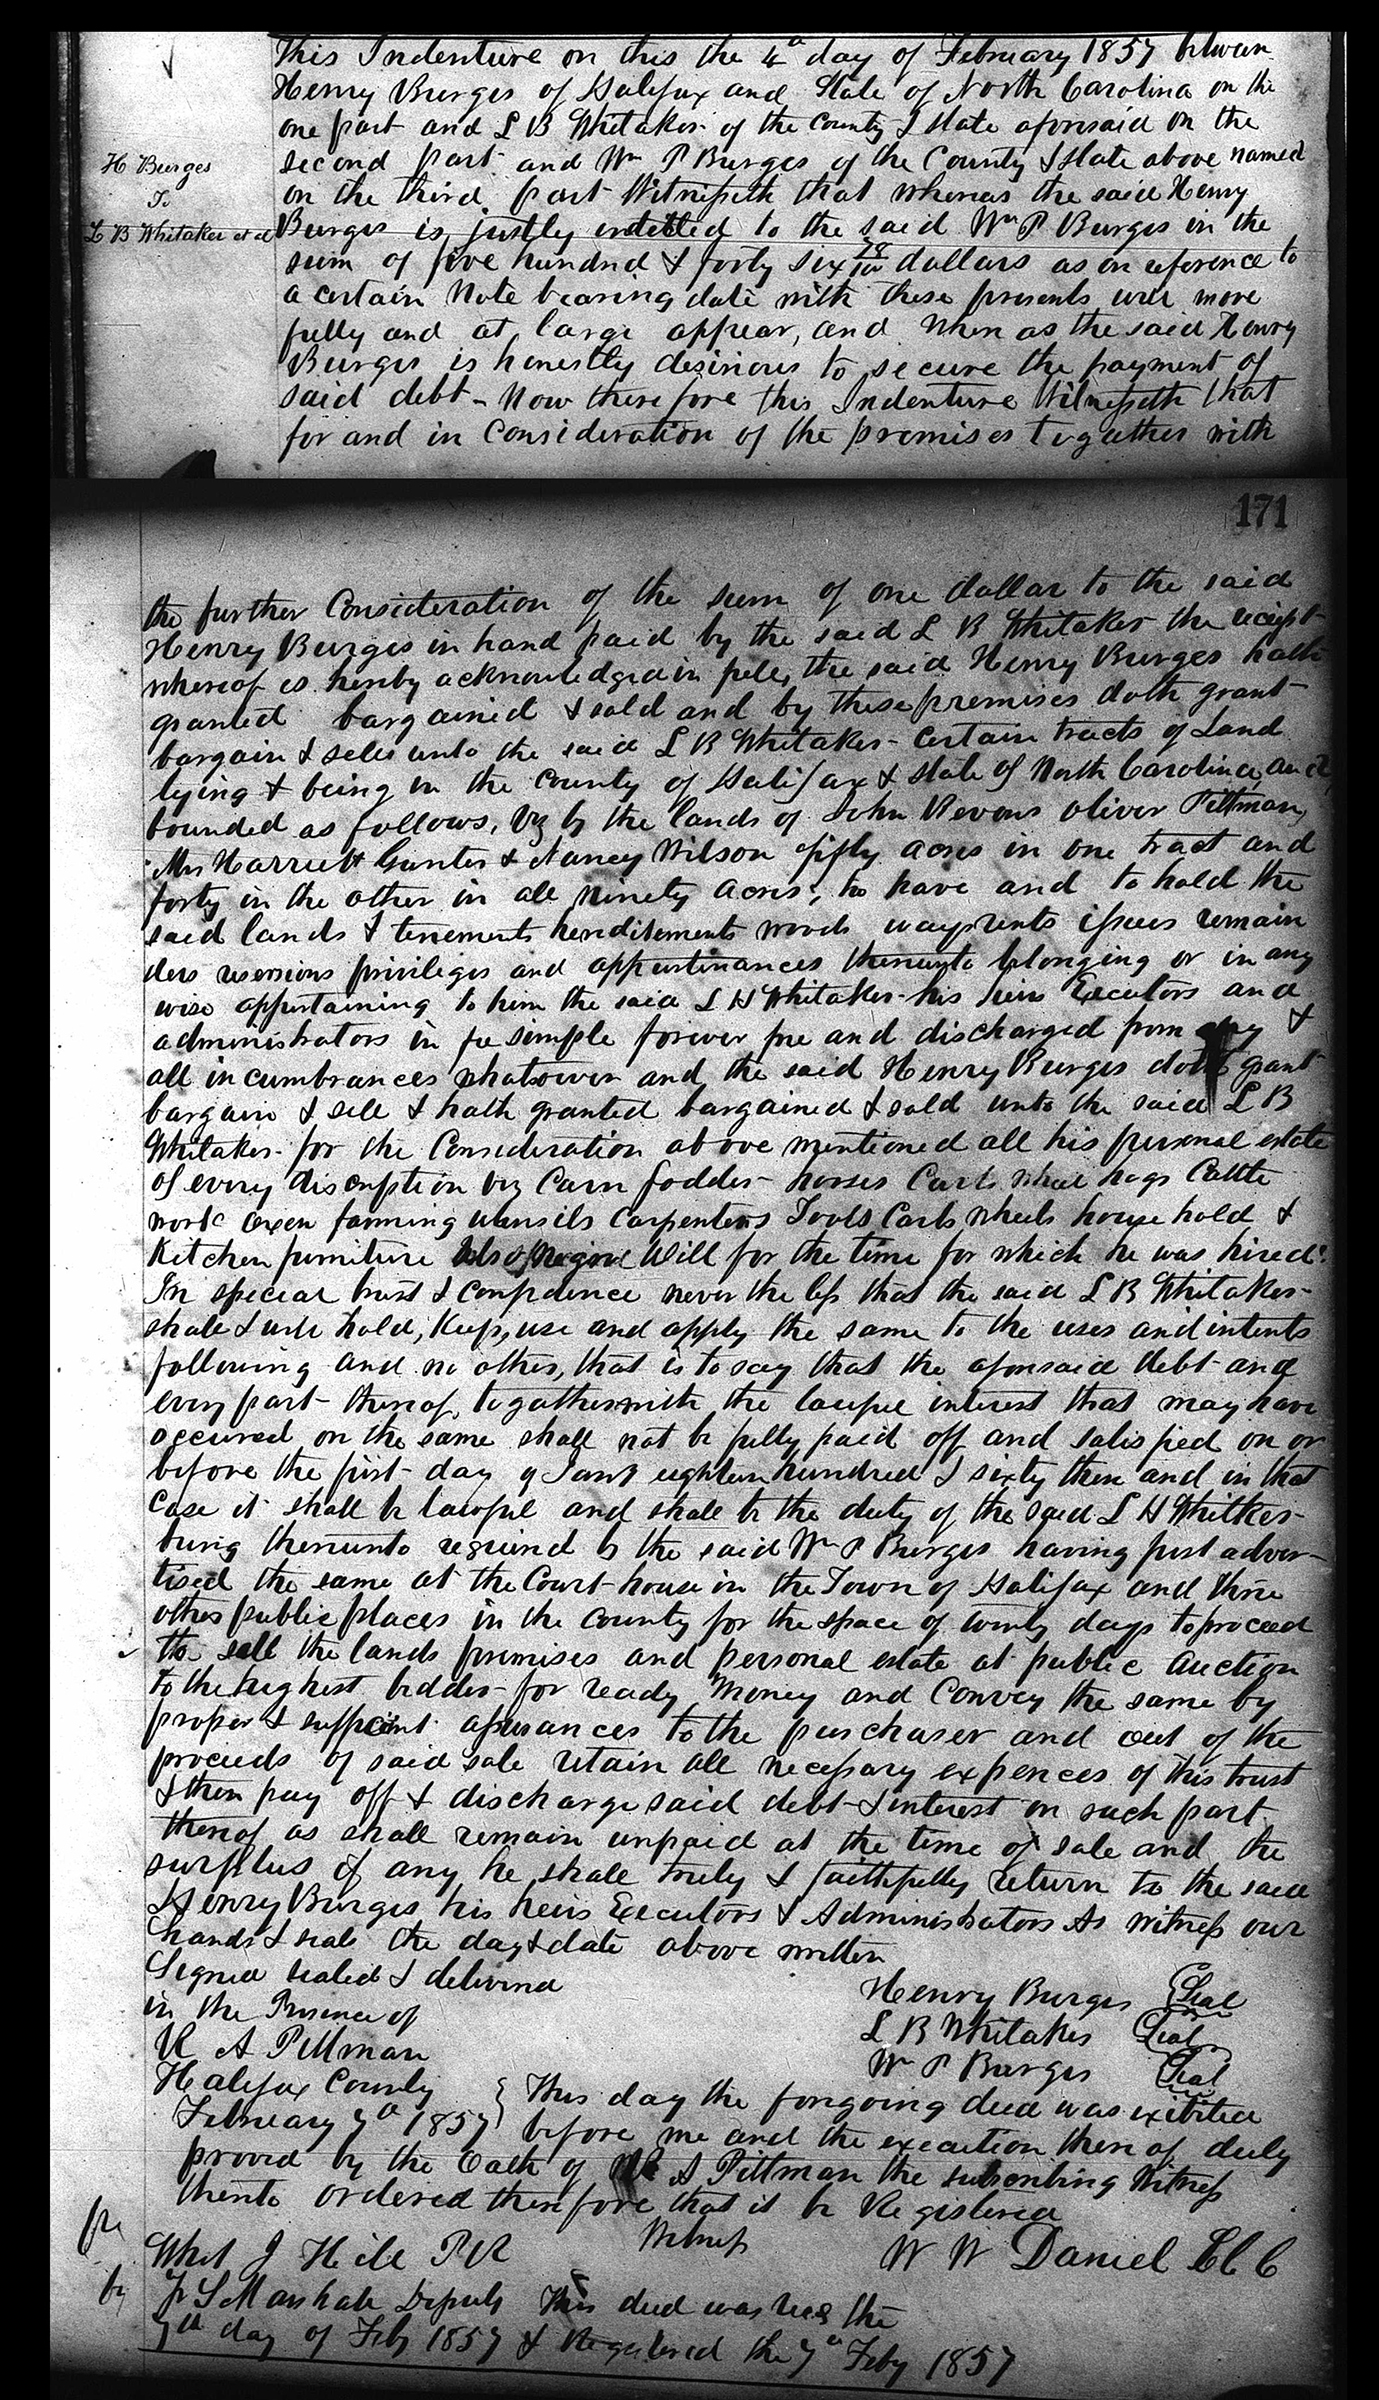 This Indenture on this the 4th day of February 1857 between
Henry Burges of Halifax and State of North Carolina on the
one part and L B Whitaker of the County & State aforesaid on the
second part and Wm P Burges of the County & State above named
H Burges
To
L B Whitaker et al
on the third part Witnesseth that whereas the said Henry
Burges is justly indebted to the said Wm P Burges in the
sum of five hundred & forty six 78/100 dollars as on reference to
a certain Note bearing date with these presents will more
fully and at large appear, and when as the said Henry
Burges is honestly desirious to secure the payment of
said debt - Now therefore this Indenture Witnesseth that
for and in Consideration of the premises together with
171
the further Consideration of the sum of one dollar to the said
Henry Burges in hand paid by the said L B Whitaker the receipt
whereof is hereby acknowledged in full, the said Henry Burges hath
granted bargained & sold and by these premises doth grant
bargain & sell unto the said L B Whitaker - certain tracts of Land
lying & being in the County of Halifax & State of North Carolina and
bounded as follows, viz by the lands of John Revons Oliver Pittman,
Mrs Harriett Gunter & Nancy Wilson fifty acres in one tract and
forty in the other in all ninety acres; to have and to hold the
said lands & tenements herditements woods ways rents issues remain
ders reversions privileges and appurtinances thereunto belonging or in any
wise appertaining to him the said L H Whitaker his heirs Executors and
administrators in fee simple forever free and discharged from any &
all incumbrances whatsoever and the said Henry Burges doth grant
bargain & sell & hath granted bargained & sold unto the said L B
Whitaker for the Consideration above mentioned all his personal estate
of every discription viz Corn fodder - horses Carts wheel hogs Cattle
work oxen farming utensils Carpenters Tools Carts wheels house hold &
Kitchen furniture also Negroe Will for the time for which he was hired.
In special trust & confidence never the less that the said L B Whitaker -
shall & will hold, keep, use and apply the same to the uses and intents
following and no other, that is to say that the aforesaid debt and
every part thereof, together with the lawful interest that may have
occured on the same shall not be fully paid off and satisfied on or
before the first day of Jany eighteen hundred & sixty three and in that
Case it shall be lawful and shall be the duty of the said L H Whitker -
being thereunto required by the said Wm P Burges having first adver-
tised the same at the Court house in the Town of Halifax and three
other public places in the County for the space of twenty days to proceed
to sell the lands premises and personal estate at public auction
to the highest bidder for ready money and Convey the same by
proper & sufficient assurances to the purchaser and out of the
proceeds of said sale retain all necessary expences of this trust
& then pay off & discharge said debt & interest on such part
thereof as shall remain unpaid at the time of sale and the
surplus if any he shall truly & faithfully return to the said
Henry Burges his heirs Executors & Administrators As witness our
hands & seal the day & date above written
Signed sealed & delivered
in the Presence of
R A Pittman
Henry Burges Seal
L B Whitaker Seal
Wm P Burges Seal
Halifax County
February 7th 1857
This day the foregoing deed was exibited
before me and the execution thereof duly
proved by the Oath of R A Pittman the subscribing Witness
thereto ordered therefore that it be Registered
Witness
W W Daniel
Whit J Hill P R
by
J S Marshall Deputy This deed was recd the
7th day of Feby 1857 & Registered the 7th Feby 1857